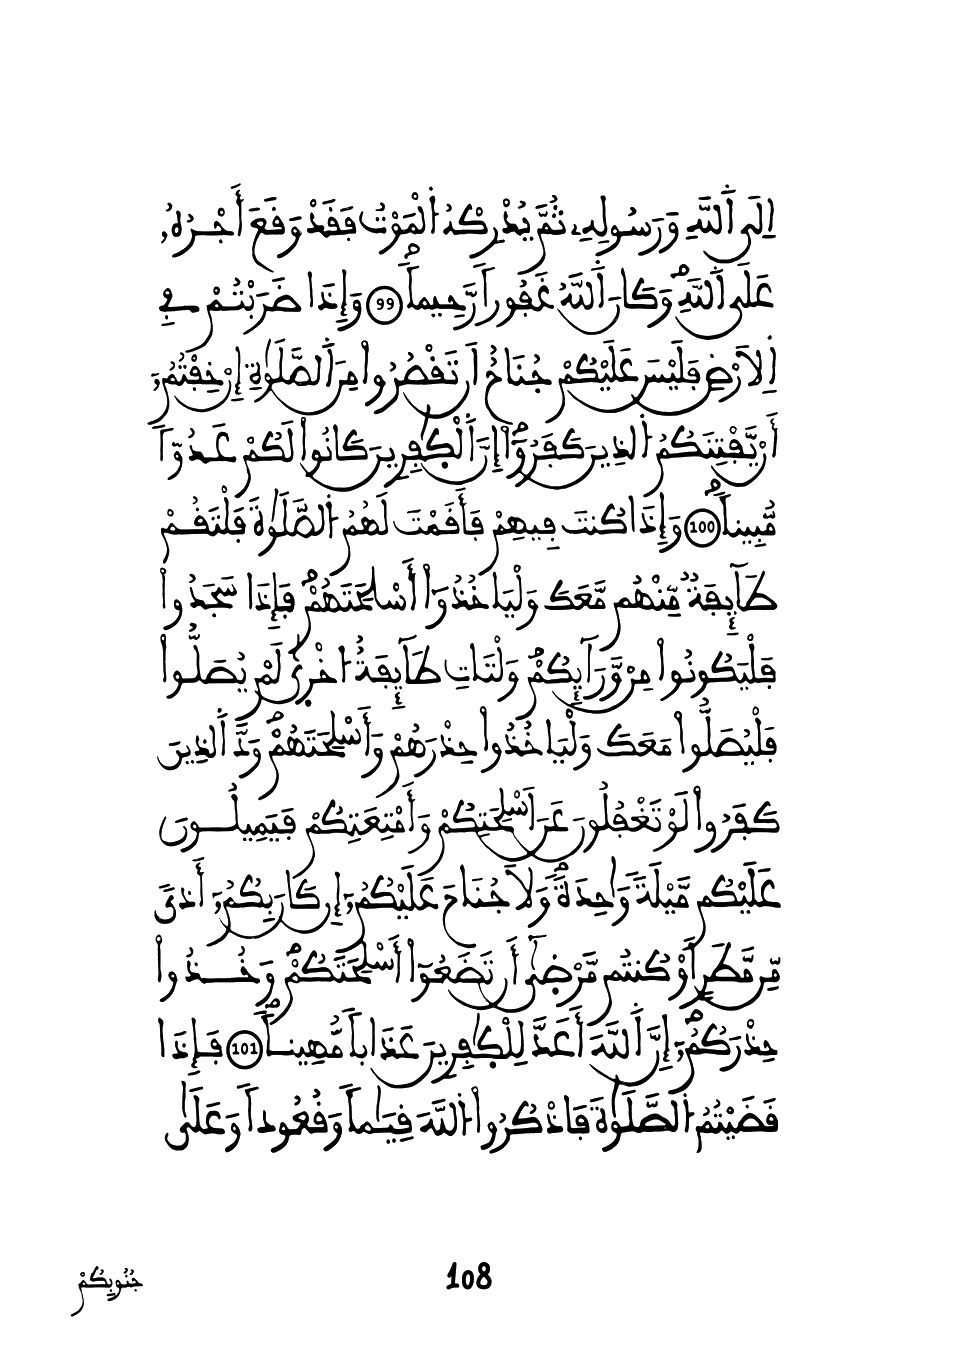 إِلَى اَ۬للَّهِ وَرَسُولِهِۦ ثُمَّ يُدْرِكْهُ اُ۬لْمَوْتُ فَقَدْ وَقَعَ أَجْرُهُۥ
عَلَى اَ۬للَّهِۖ وَكَانَ اَ۬للَّهُ غَفُوراٗ رَّحِيماٗۖ 99 وَإِذَا ضَرَبْتُمْ فِے
اِ۬لْأَرْضِ فَلَيْسَ عَلَيْكُمْ جُنَاحٌ أَن تَقْصُرُواْ مِنَ اَ۬لصَّلَوٰةِ إِنْ خِفْتُمُۥٓ
أَنْ يَّفْتِنَكُمُ اُ۬لذِينَ كَفَرُوٓاْۖ إِنَّ اَ۬لْكٰ۪فِرِينَ كَانُواْ لَكُمْ عَدُوّاٗ
مُّبِيناٗۖ 100 وَإِذَا كُنتَ فِيهِمْ فَأَقَمْتَ لَهُمُ اُ۬لصَّلَوٰةَ فَلْتَقُمْ
طَآئِفَةٞ مِّنْهُم مَّعَكَ وَلْيَاخُذُوٓاْ أَسْلِحَتَهُمْۖ فَإِذَا سَجَدُواْ
فَلْيَكُونُواْ مِنْ وَّرَآئِكُمْۖ وَلْتَاتِ طَآئِفَةٌ اُخْر۪يٰ لَمْ يُصَلُّواْ
فَلْيُصَلُّواْ مَعَكَ وَلْيَاخُذُواْ حِذْرَهُمْ وَأَسْلِحَتَهُمْۖ وَدَّ اَ۬لذِينَ
كَفَرُواْ لَوْ تَغْفُلُونَ عَنَ اَسْلِحَتِكُمْ وَأَمْتِعَتِكُمْ فَيَمِيلُونَ
عَلَيْكُم مَّيْلَةٗ وَٰحِدَةٗۖ وَلَا جُنَاحَ عَلَيْكُمُۥٓ إِن كَانَ بِكُمُۥٓ أَذيٗ
مِّن مَّطَرٍ اَوْ كُنتُم مَّرْض۪يٰٓ أَن تَضَعُوٓاْ أَسْلِحَتَكُمْۖ وَخُذُواْ
حِذْرَكُمُۥٓۖ إِنَّ اَ۬للَّهَ أَعَدَّ لِلْكٰ۪فِرِينَ عَذَاباٗ مُّهِيناٗۖ 101 فَإِذَا
قَضَيْتُمُ اُ۬لصَّلَوٰةَ فَاذْكُرُواْ اُ۬للَّهَ قِيَٰماٗ وَقُعُوداٗ وَعَلَىٰ
جُنُوبِكُمْ
108